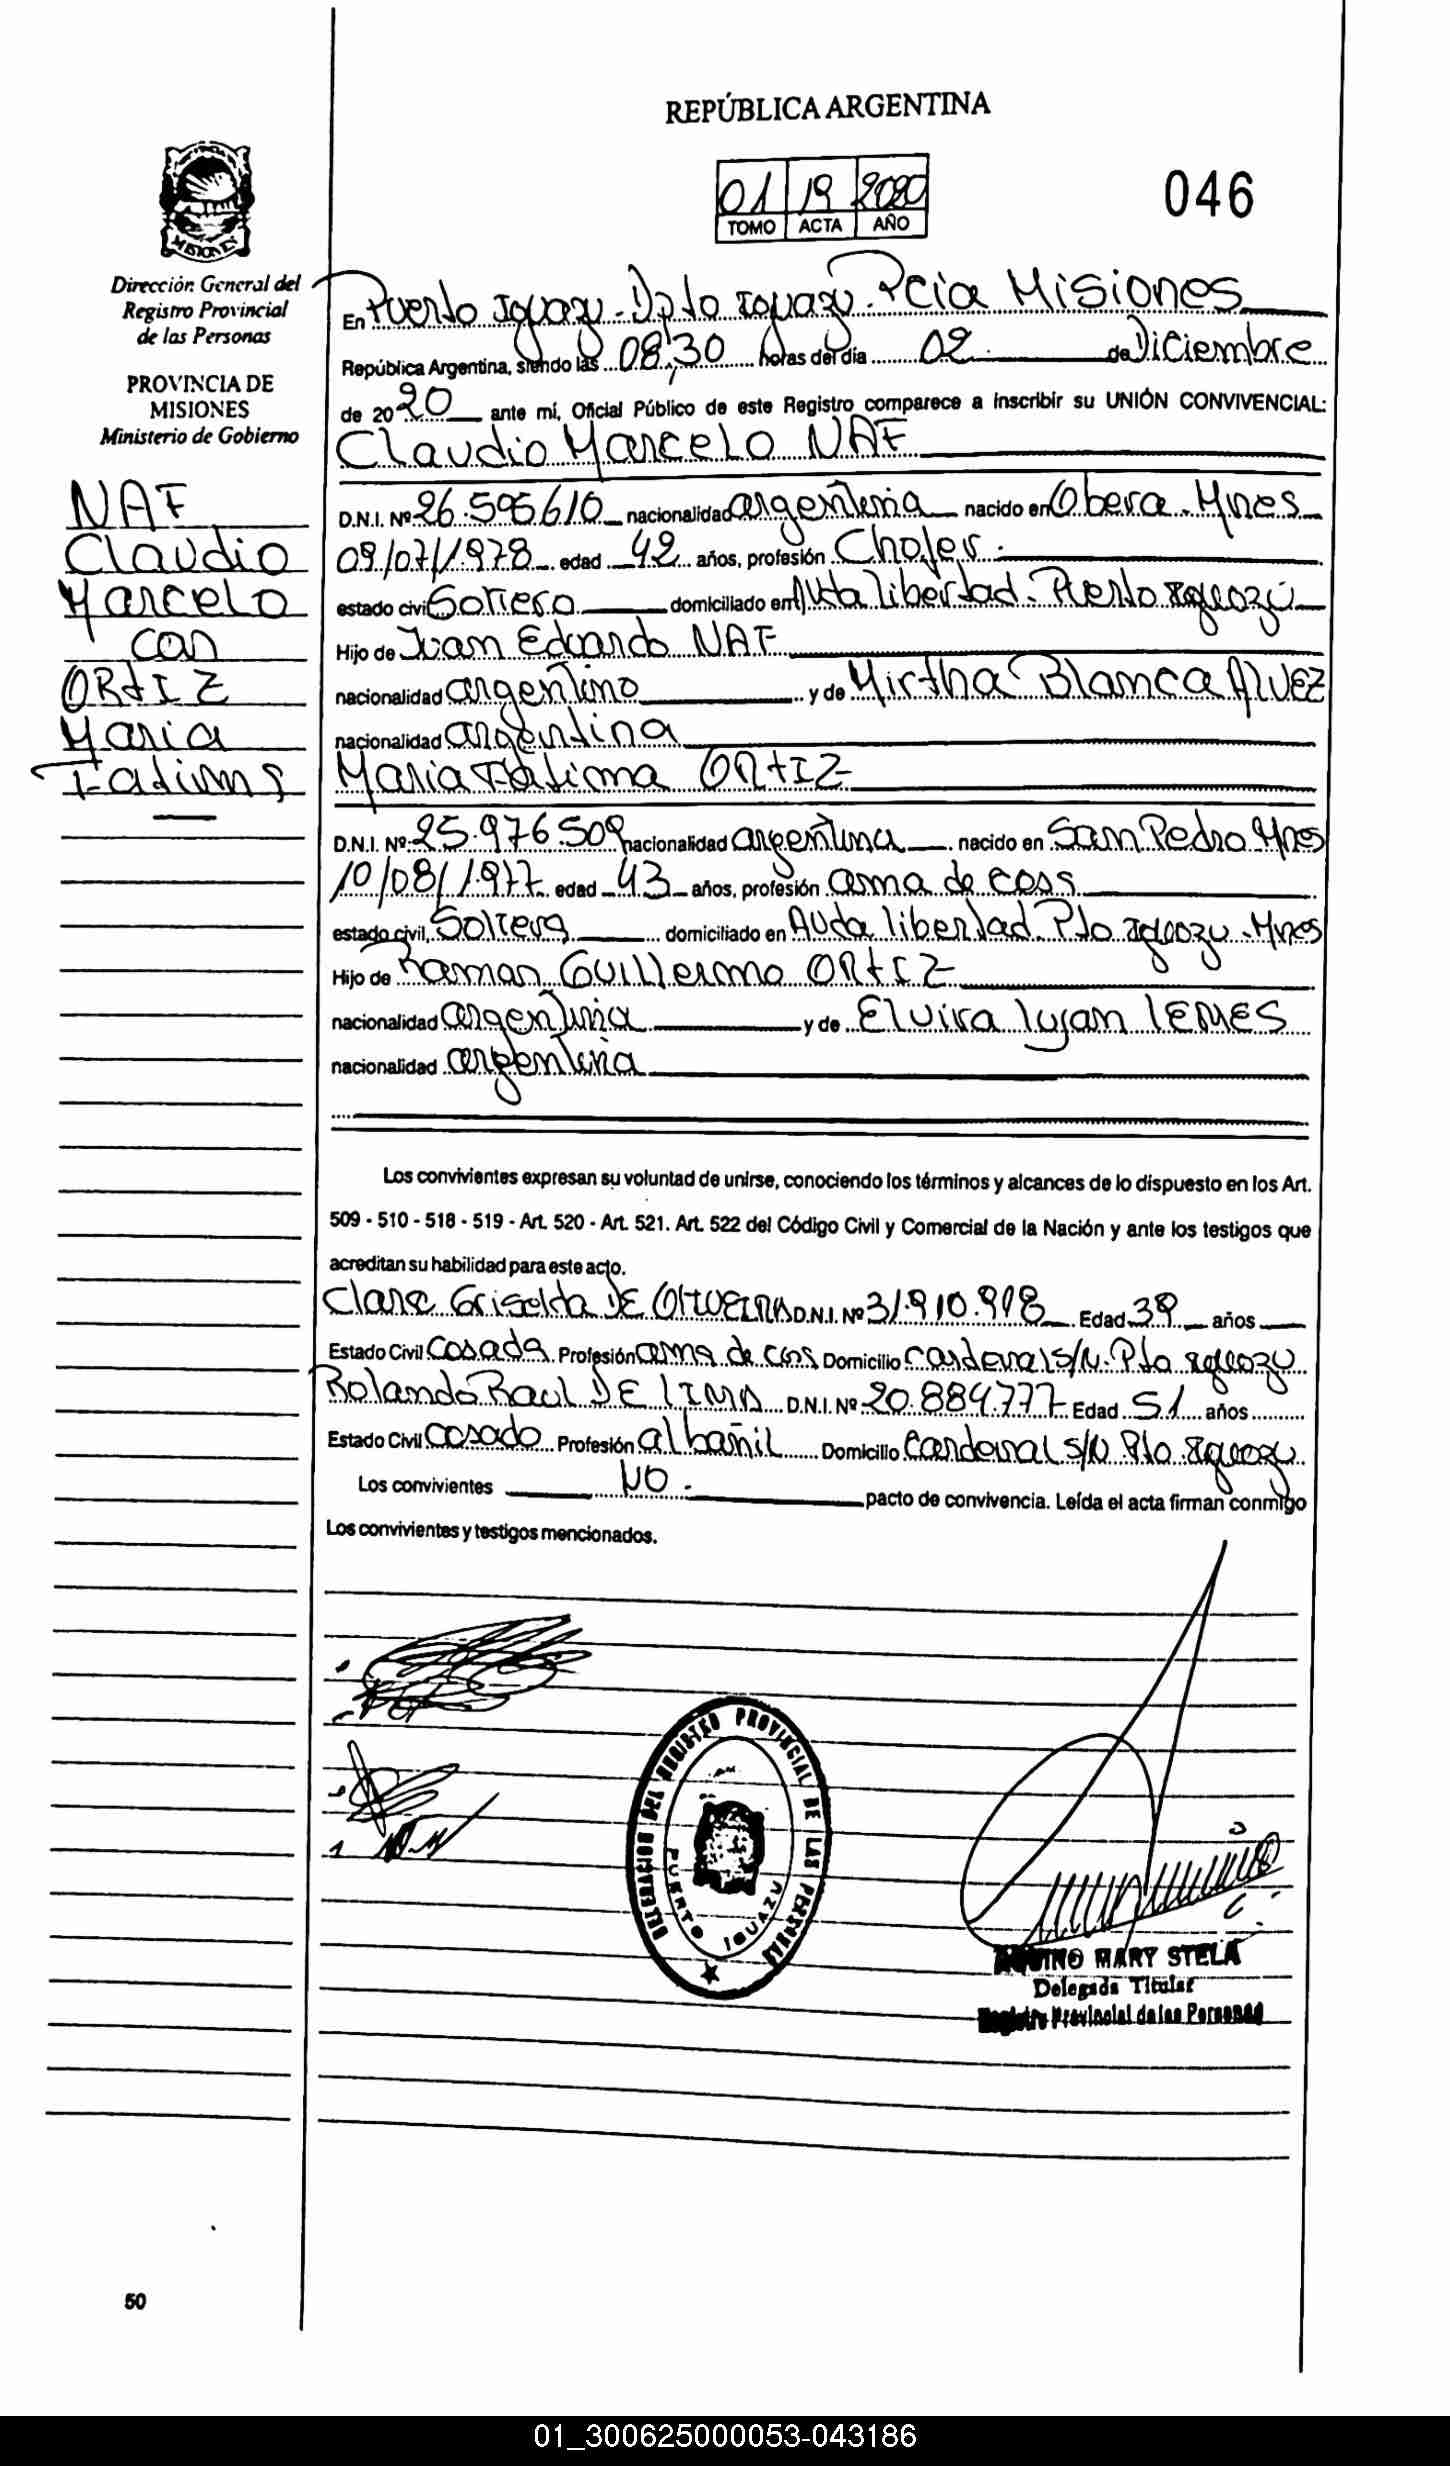 REPÚBLICA ARGENTINA
01 19 2020
TOMO ACTA AÑO
046
MISIONES
Dirección General del
Registro Provincial
de las Personas
PROVINCIA DE
MISIONES
Ministerio de Gobierno
NAF
Claudio
Marcelo
con
ORtIZ
Maria
Fatima
En Puerto Iguazu - Dpto Iguazu. Pcia Misiones
República Argentina, siendo las 08,30 horas del día 02 de Diciembre
de 2020 ante mí, Oficial Público de este Registro comparece a inscribir su UNIÓN CONVIVENCIAL:
Claudio Marcelo NAF
D.N.I. Nº 26.595610 nacionalidad argentina nacido en Obera. Mnes
09/07/1978 edad 42 años, profesión Chofer.
estado civil Soltero domiciliado en Avda libertad. Puerto Iguazú
Hijo de Juan Eduardo NAF
nacionalidad argentino y de Mirtha Blanca AlVEZ
nacionalidad argentina
Maria Fatima ORtIZ
D.N.I. Nº 25.976.509 nacionalidad argentina nacido en San Pedro Mnes
10/08/1977 edad 43 años, profesión ama de casa
estado civil, Soltera domiciliado en Avda libertad. Pto Iguazu. Mnes
Hijo de Ramon Guillermo ORtIZ
nacionalidad argentina y de Elvira lujan lEMES
nacionalidad argentina
Los convivientes expresan su voluntad de unirse, conociendo los términos y alcances de lo dispuesto en los Art.
509 - 510 - 518 - 519 - Art. 520 - Art. 521. Art. 522 del Código Civil y Comercial de la Nación y ante los testigos que
acreditan su habilidad para este acto.
Clara Griselda DE OlIVEIRA D.N.I. Nº 31.910.918 Edad 39 años
Estado Civil Casada Profesión ama de casa Domicilio Cardenal S/N. Pto Iguazu
Rolando Raul DE lIMA D.N.I. Nº 20.884.777 Edad 51 años
Estado Civil Casado Profesión albañil Domicilio Cardenal S/N Pto Iguazu
Los convivientes NO. pacto de convivencia. Leída el acta firman conmigo
Los convivientes y testigos mencionados.
DELEGACION DEL REGISTRO PROVINCIAL DE LAS PERSONAS
PUERTO IGUAZU
AQUINO MARY STELA
Delegada Titular
Registro Provincial de las Personas
50
01_300625000053-043186